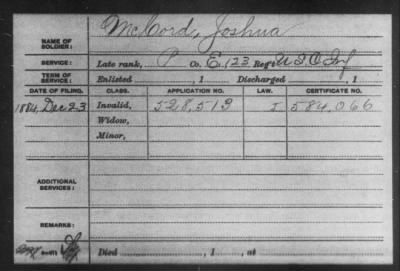 NAME OF SOLDIER: McCord, Joshua
SERVICE: Late rank, P Co. E, 123 Reg't U S C Inf
TERM OF SERVICE: Enlisted , 1 Discharged , 1
DATE OF FILING. CLASS. APPLICATION NO. LAW. CERTIFICATE NO.
1884, Dec 23 Invalid, 528,513 J 584,066
Widow,
Minor,
ADDITIONAL SERVICES:
REMARKS:
Died , 1 , at